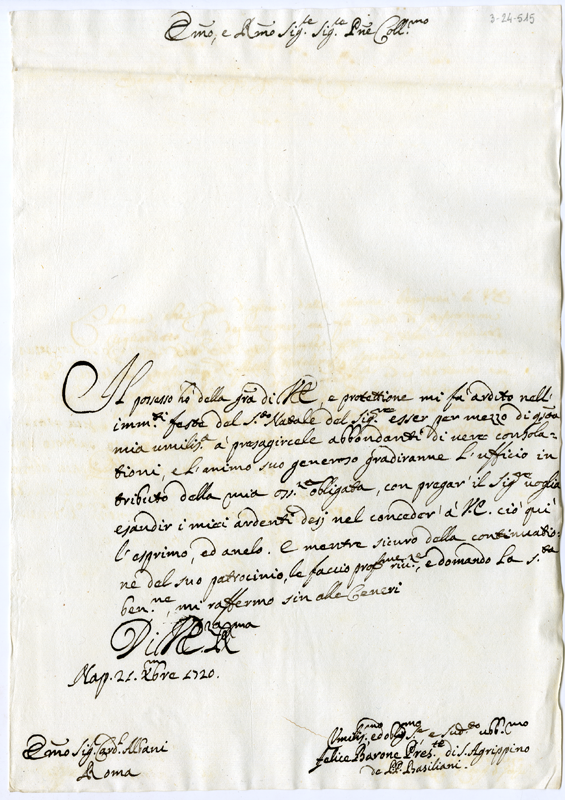 3-24-515
Emo, e Rmo Sig.re Sig.re Pne Coll.mo
Il possesso hò della gra di VE, e protettione mi fà ardito nell'
imm.ti feste del S.to Natale del Sig.re esser per mezzo di q.sta
mia umiliss.a à presagircele abbondanti di vere consola=
tioni, e l'animo suo generoso gradiranne l'ufficio in
tributo della mia oss.za obligata, con pregar il Sig.re voglia
esaudir i miei ardenti desj nel conceder à VE. ciò quì
l'esprimo, ed anelo. E mentre sicuro della continuatio=
ne del suo patrocinio, le faccio prof.me riv.ze, e domando la s.ta
ben.ne, mi raffermo sin alle Ceneri
Di VE. Rma
Nap. 21. Xbre 1720.
Emo Sig. Card. Albani
Roma
Umiliss.mo ed oblig.mo S.re e Sud.to obb.mo
Felice Barone Pres.te di S. Agrippino
de PP. Basiliani.